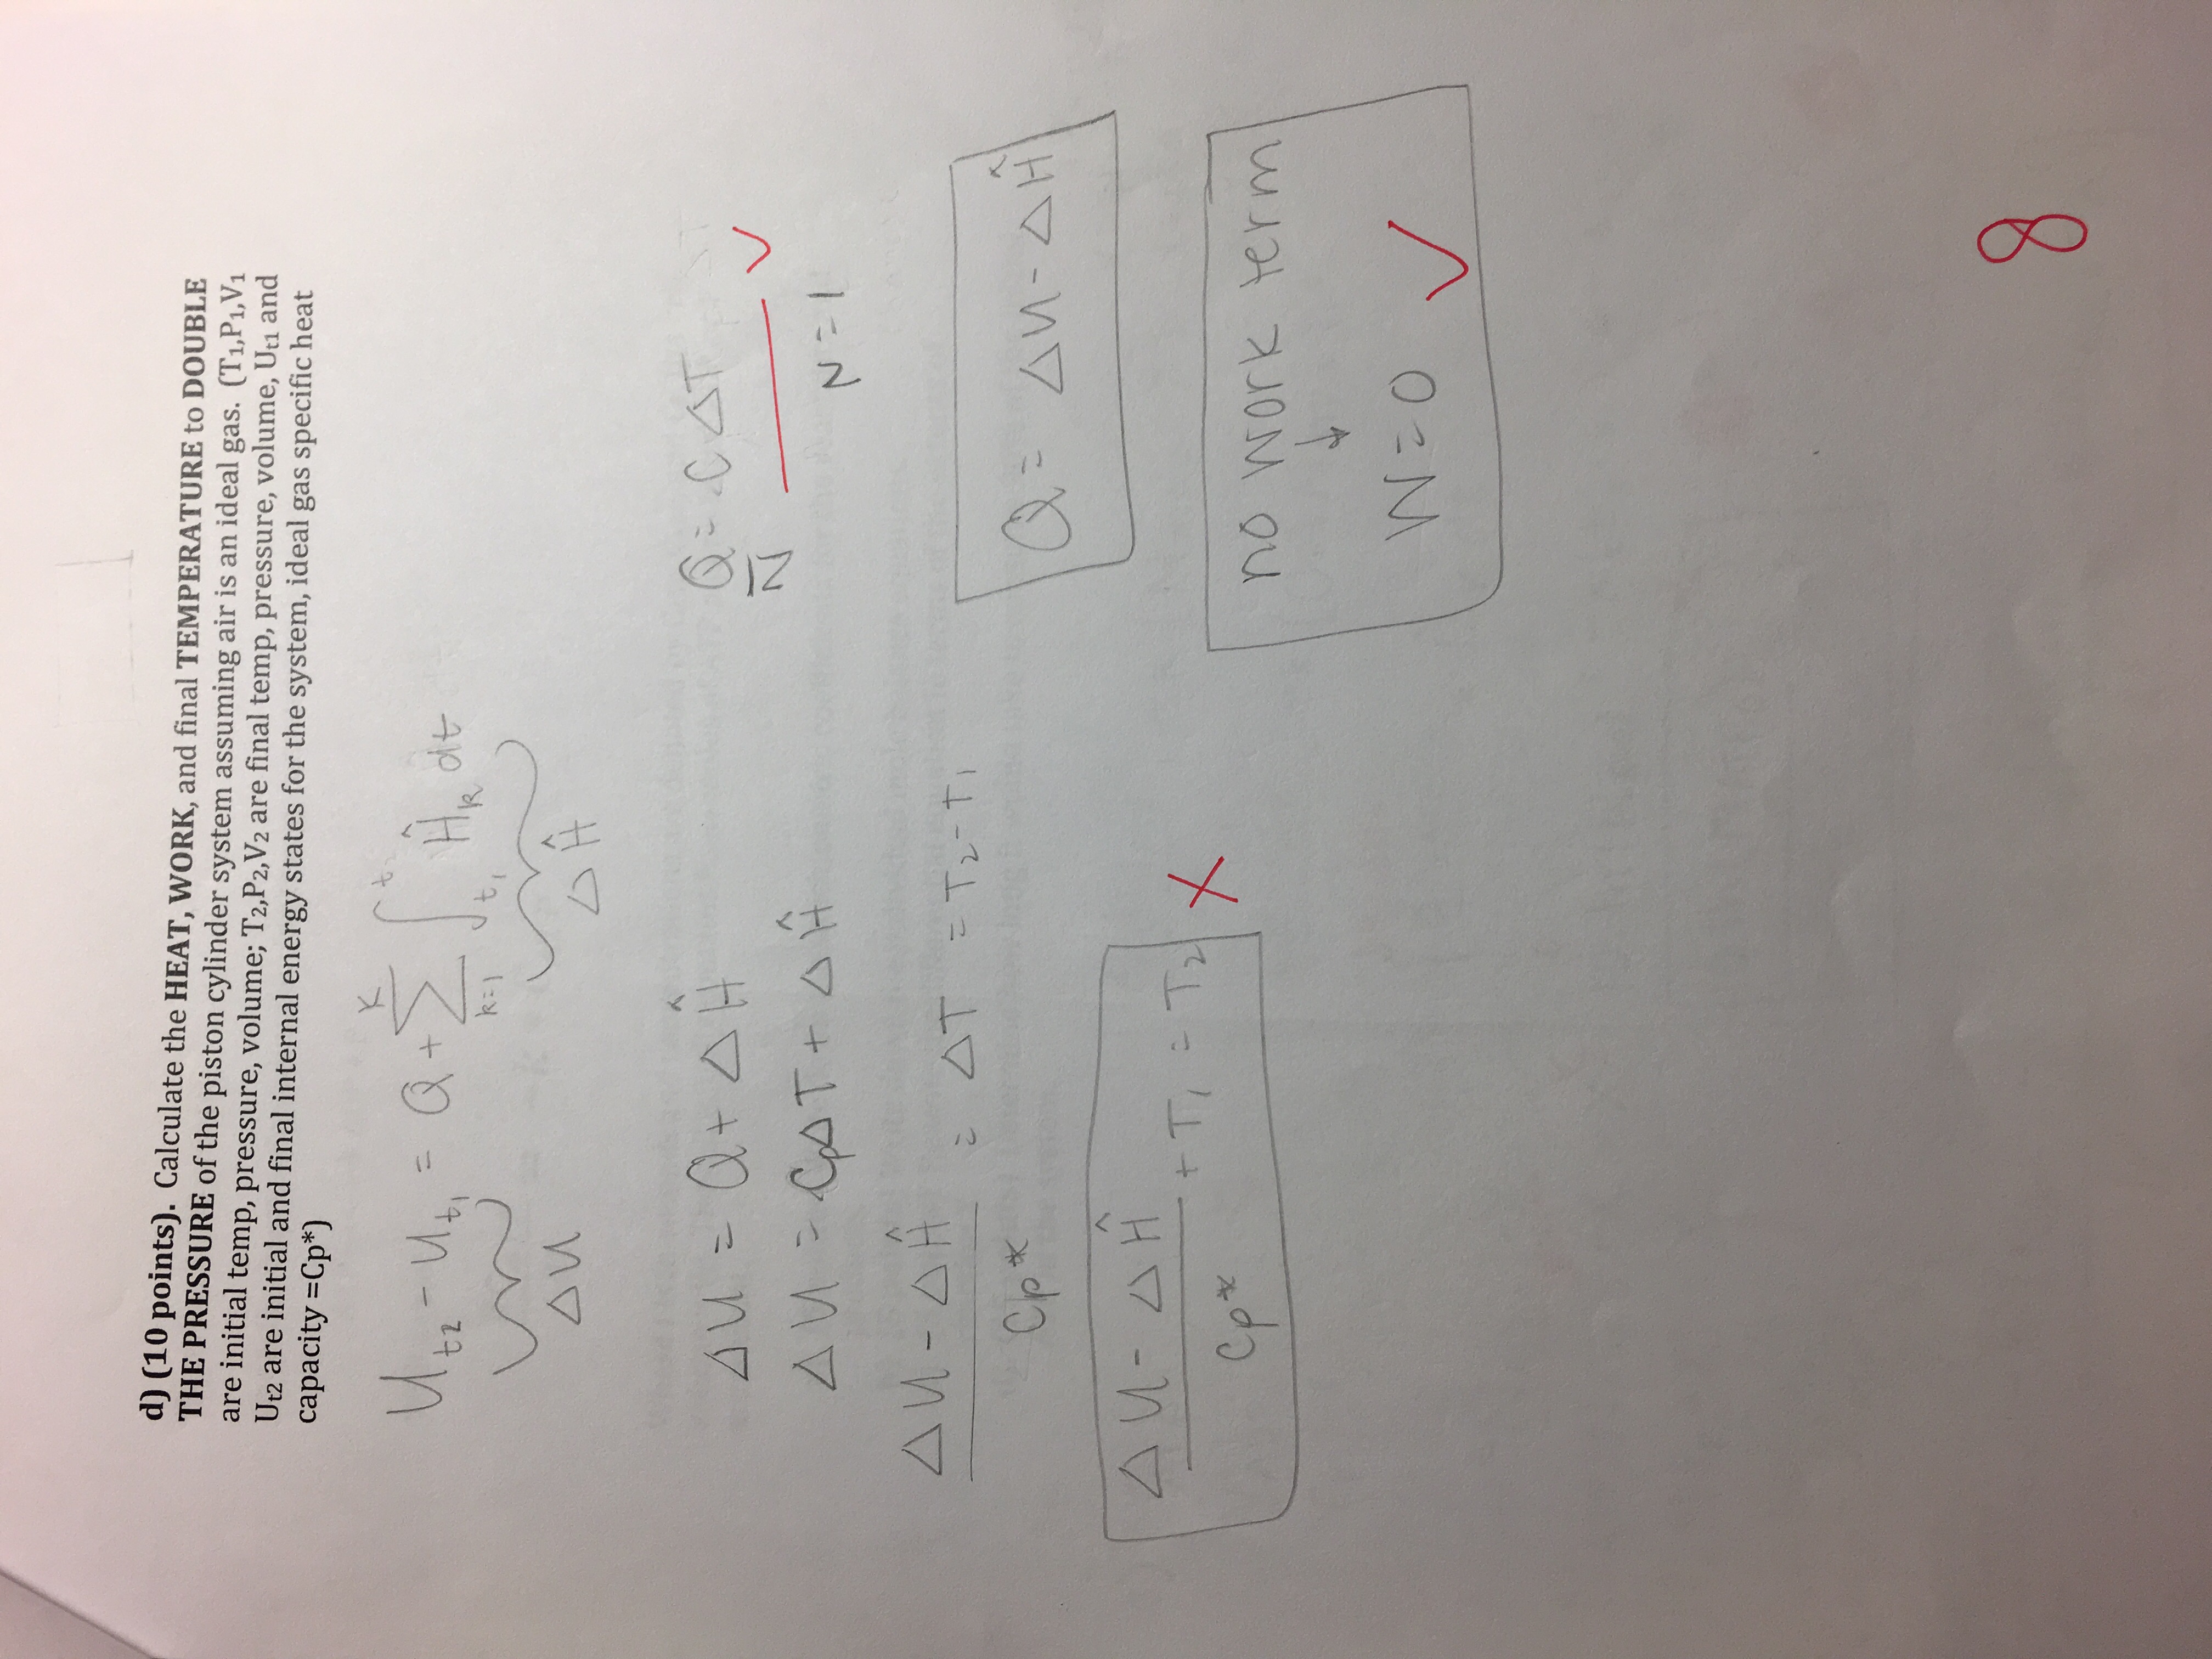 d) (10 points). Calculate the HEAT, WORK, and final TEMPERATURE to DOUBLE
THE PRESSURE of the piston cylinder system assuming air is an ideal gas. (T₁,P₁,V₁
are initial temp, pressure, volume; T₂,P₂,V₂ are final temp, pressure, volume, Uₜ₁ and
Uₜ₂ are initial and final internal energy states for the system, ideal gas specific heat
capacity =Cp*)
U_{t2} - U_{t1} = Q + \sum_{k=1}^{K} \int_{t_1}^{t_2} Ĥ_k dt
ΔU
ΔĤ
ΔU = Q + ΔĤ
Q/N = C ΔT ✓
ΔU = CpΔT + ΔĤ
N = 1
(ΔU - ΔĤ)/Cp* = ΔT = T₂ - T₁
Q = ΔU - ΔĤ
(ΔU - ΔĤ)/Cp* + T₁ = T₂ X
no work term
↓
W = 0 ✓
8